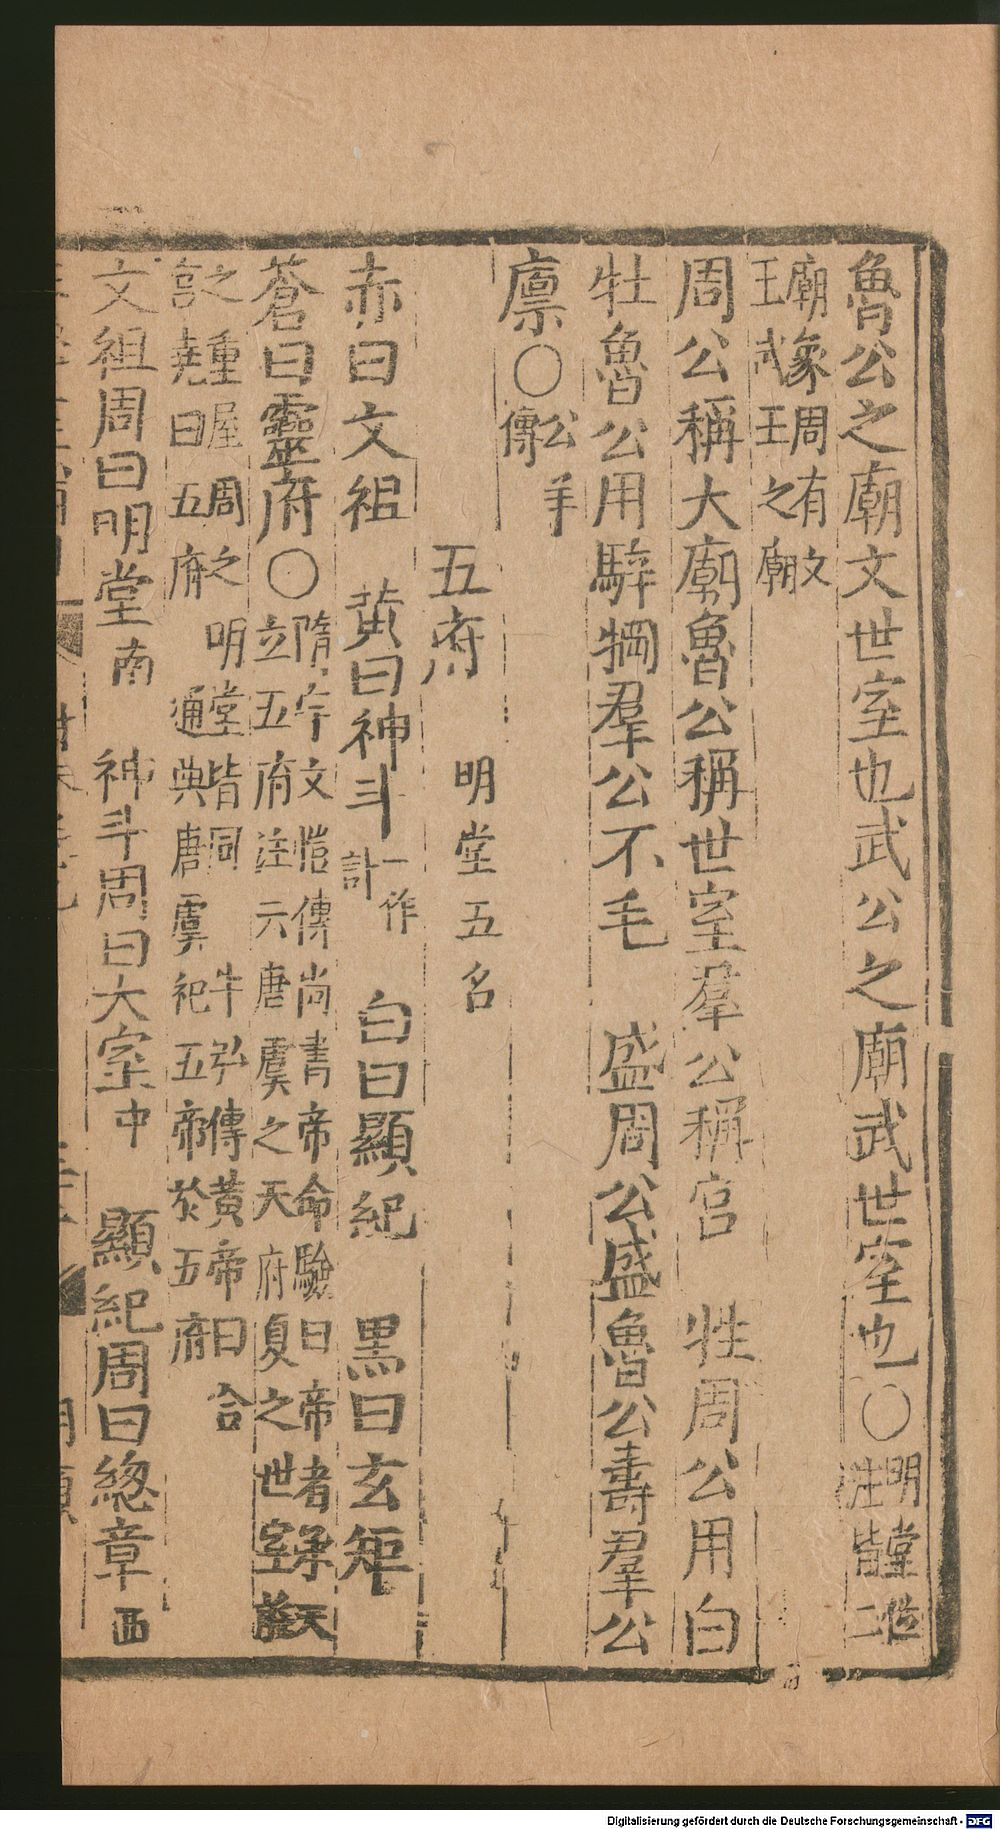 魯公之廟文世室也武公之廟武世室也〇明堂位注皆二
廟象周有文王武王之廟
周公稱大廟魯公稱世室羣公稱宮　牲周公用白
牡魯公用騂犅羣公不毛　盛周公盛魯公燾羣公
廩〇公羊傳
五府　明堂五名
赤曰文祖　黃曰神斗一作計　白曰顯紀　黑曰玄矩
蒼曰靈府〇隋宇文愷傳尚書帝命驗曰帝者承天立五府注云唐虞之天府夏之世室殷
之重屋周之明堂皆同　牛弘傳黃帝曰合宮堯曰五府　通典唐虞祀五帝於五府
文祖周曰明堂南　神斗周曰大室中　顯紀周曰緫章西
Digitalisierung gefördert durch die Deutsche Forschungsgemeinschaft - DFG